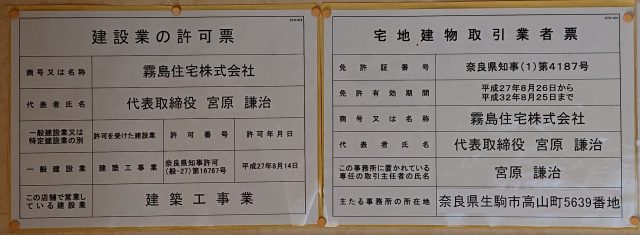 建設業の許可票
商号又は名称 霧島住宅株式会社
代表者氏名 代表取締役 宮原 謙治
一般建設業又は
特定建設業の別 許可を受けた建設業 許可番号 許可年月日
一般建設業 建築工事業 奈良県知事許可
(般-27)第16767号 平成27年8月14日
この店舗で営業し
ている建設業 建築工事業
宅地建物取引業者票
免許証番号 奈良県知事(1)第4187号
免許有効期間 平成27年8月26日から
平成32年8月25日まで
商号又は名称 霧島住宅株式会社
代表者氏名 代表取締役 宮原 謙治
この事務所に置かれている
専任の取引主任者の氏名 宮原 謙治
主たる事務所の所在地 奈良県生駒市高山町5639番地